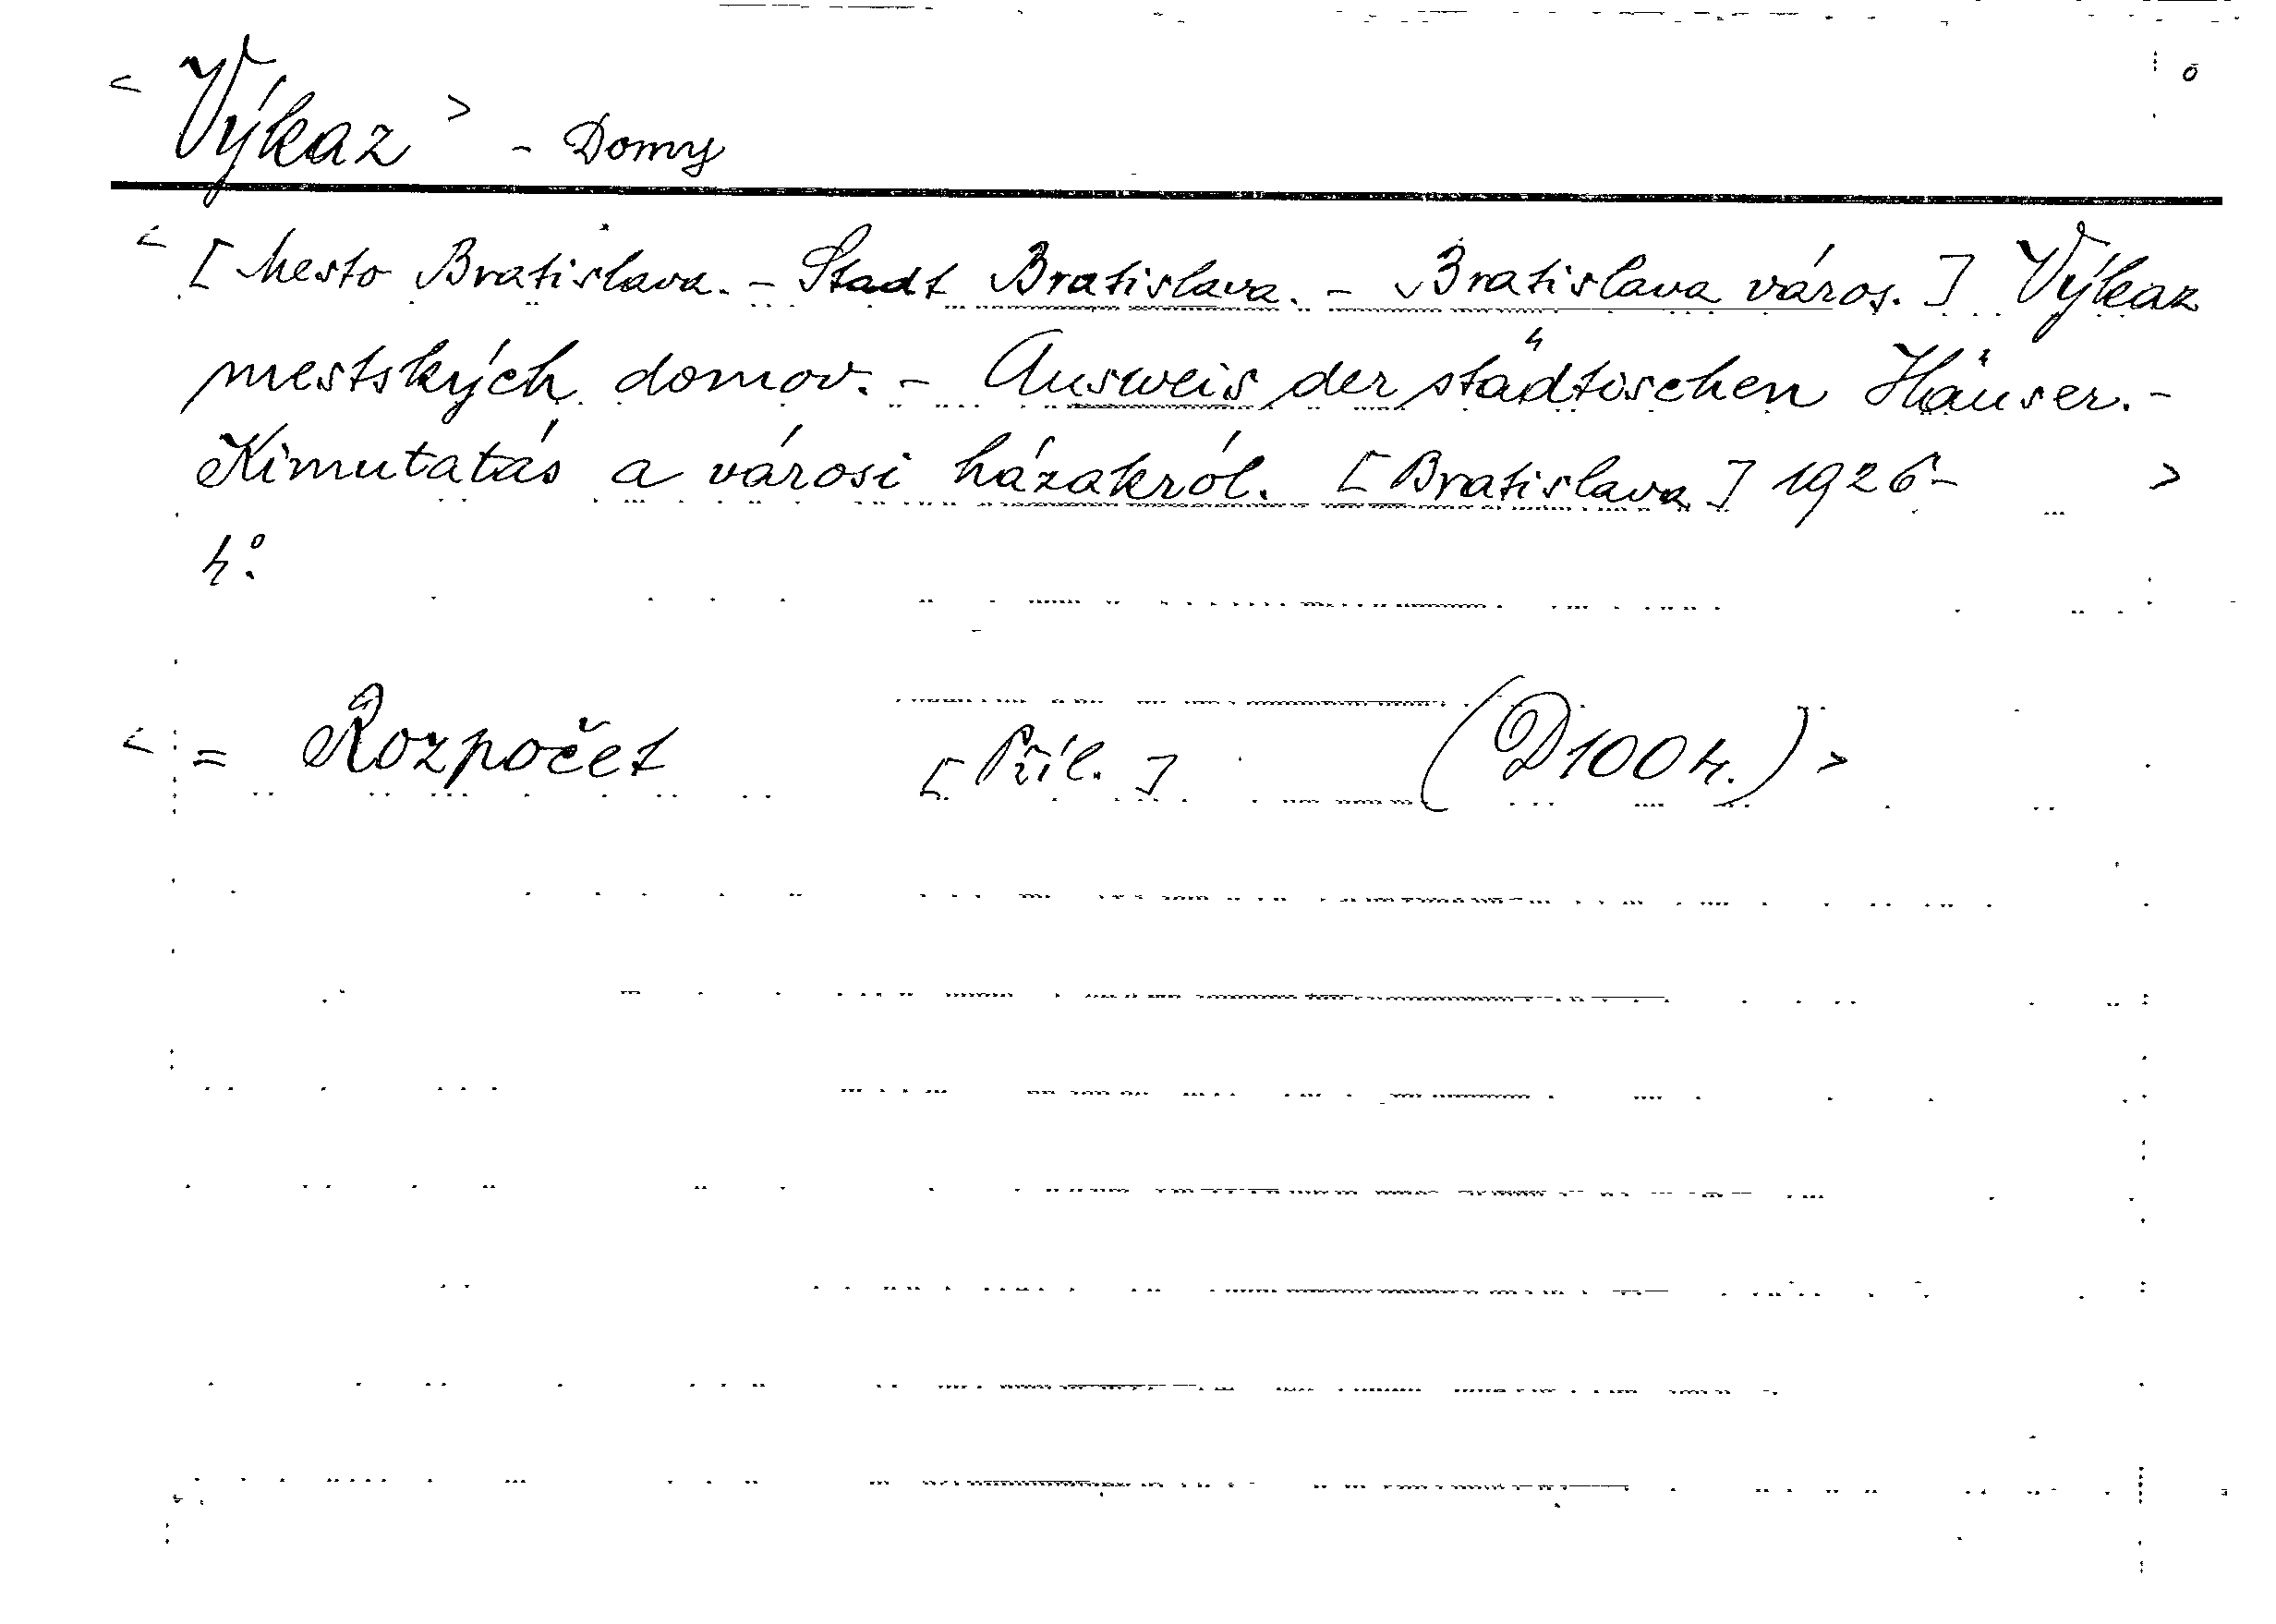 < Výkaz > - Domy
< [Mesto Bratislava. - Stadt Bratislava. - Bratislava város.] Výkaz
mestských domov. - Ausweis der städtischen Häuser. -
Kimutatás a városi házakról. [Bratislava] 1926- >
4°.
< = Rozpočet [Příl.] (D1004.) >